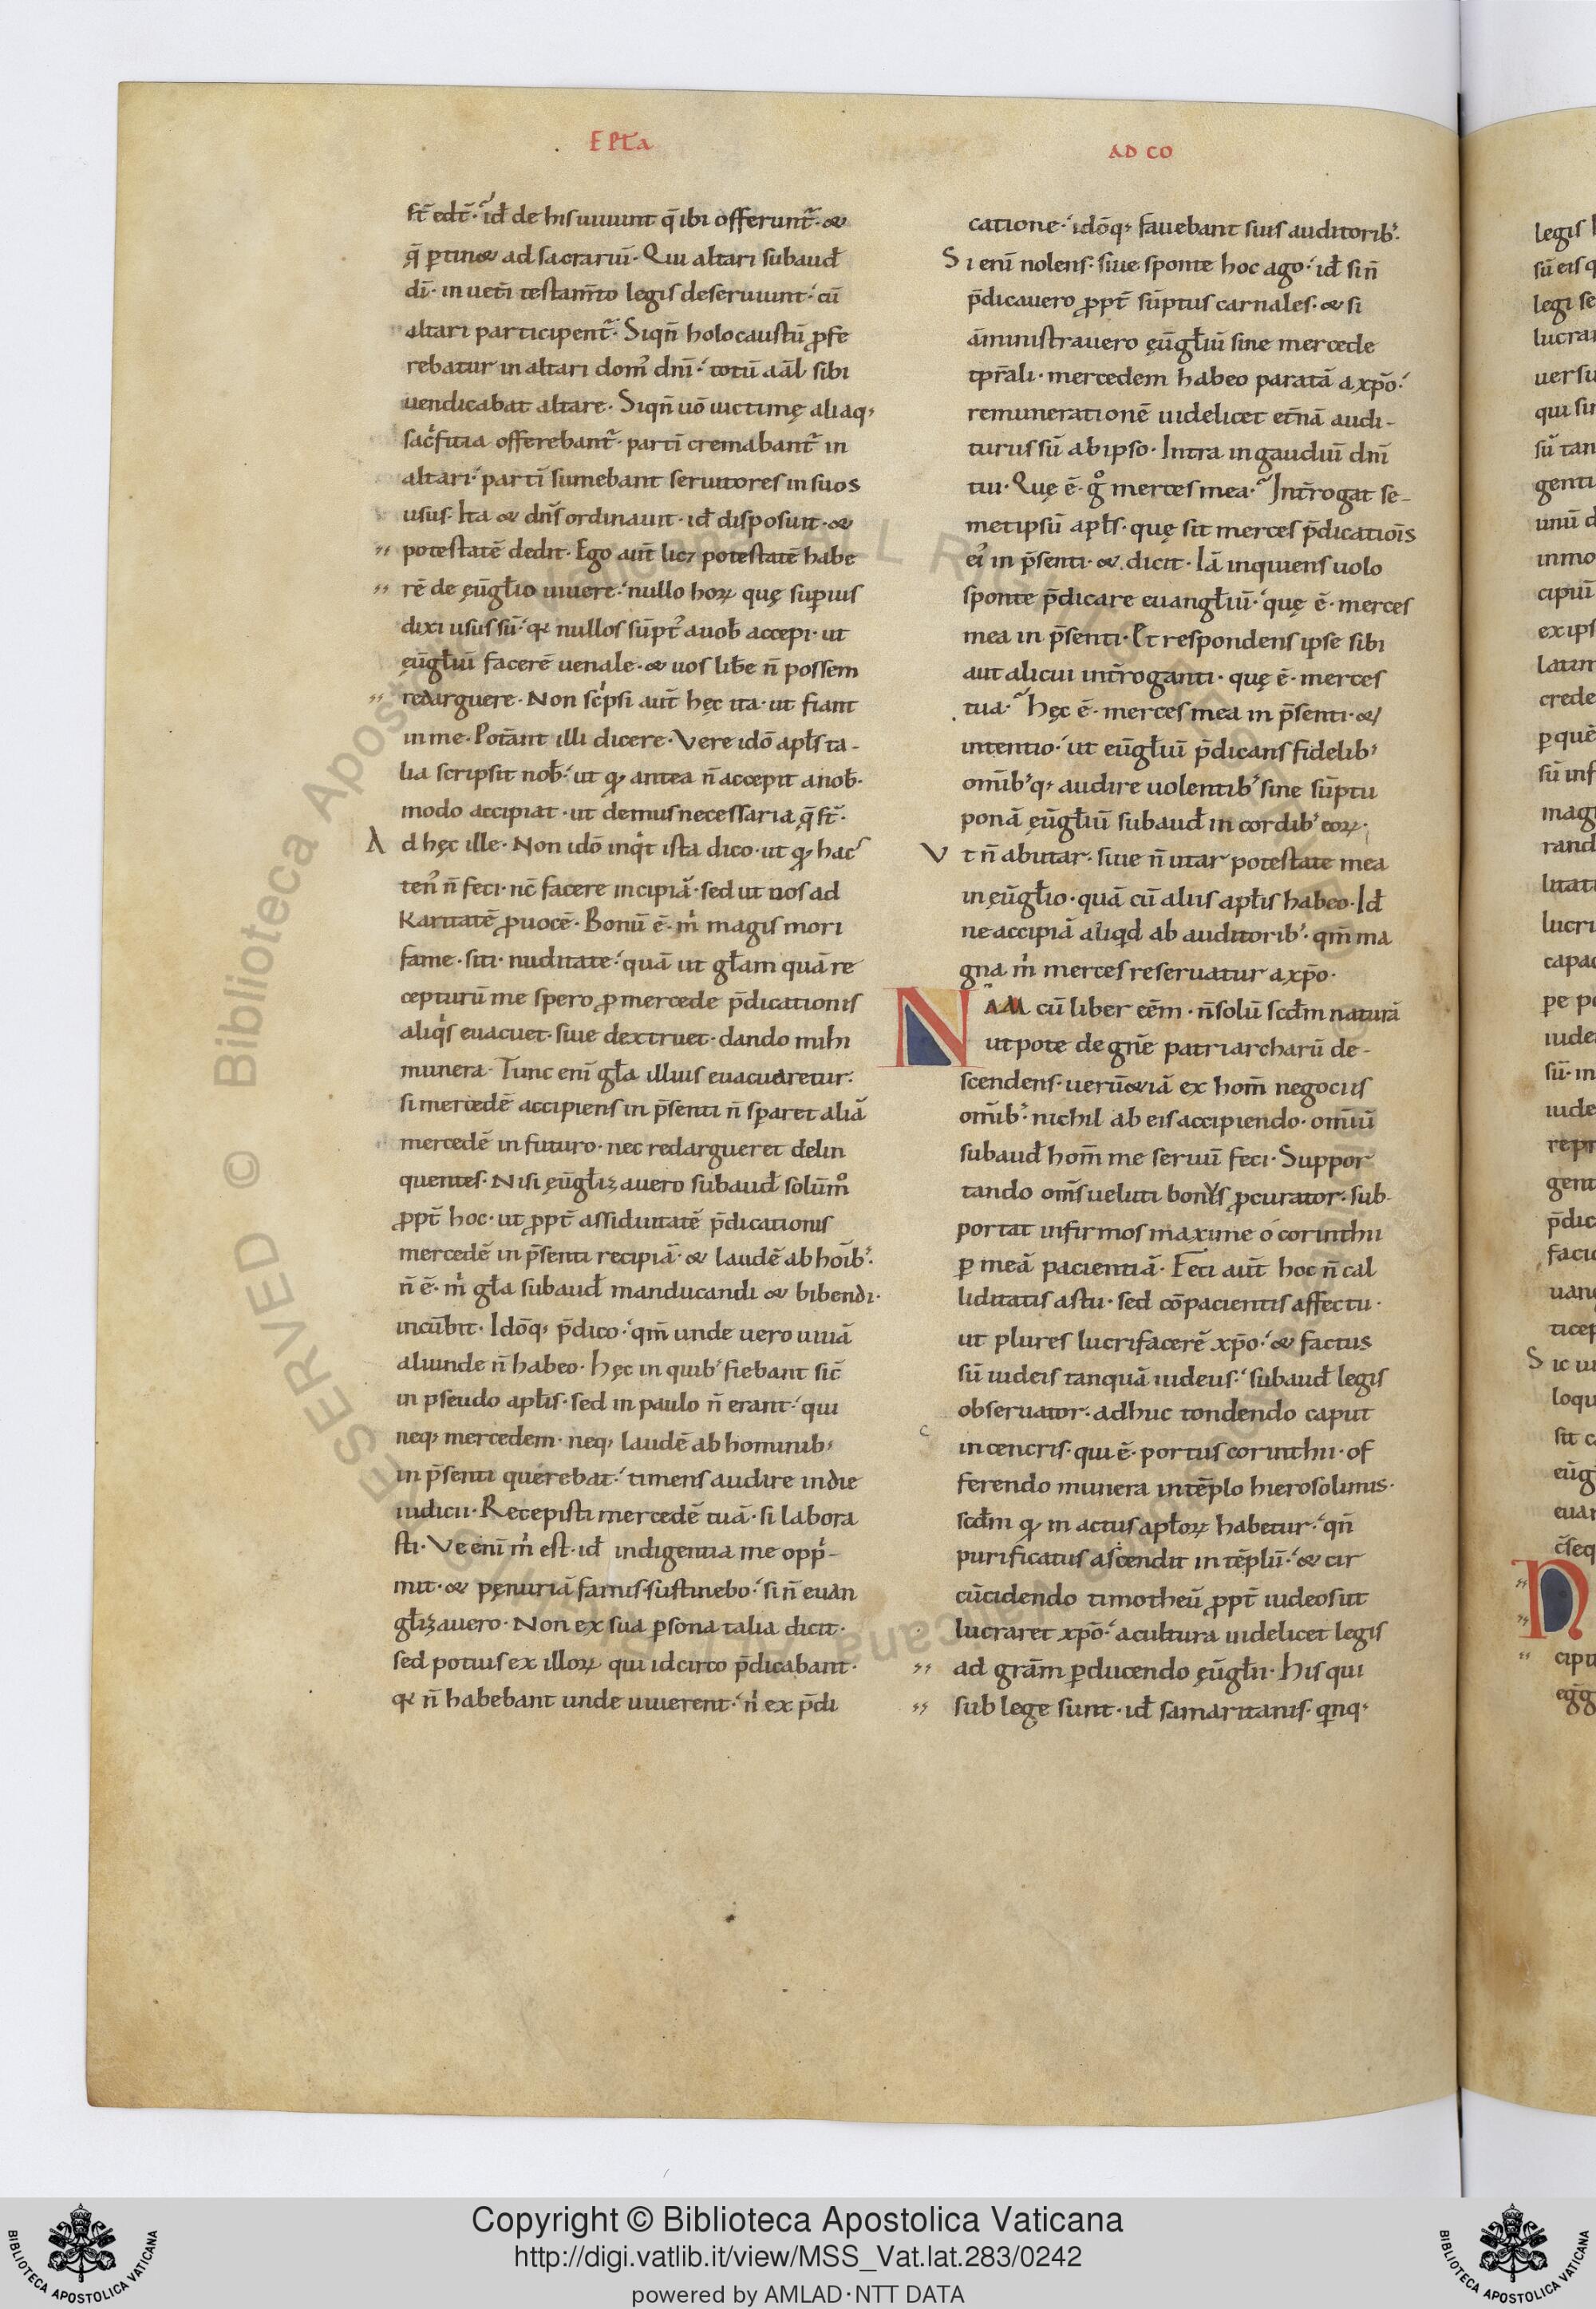 EPƚa
AD CO
st̄ edt̄· id̄ de his uiuunt q̄ ibi offerunt᷑· &
q̄ ꝑtin& ad sacrariū· Qui altari subaud̄
dī· in uet̄i testam̄to legis deseruiunt· cū
altari participent᷑· Siqn̄ holocaustū ꝓfe
rebatur in altari domꝰ dn̄i· totū aāl sibi
uendicabat altare· Siqn̄ uō uictimę aliaq;
sac̍fitia offerebant᷑· partī cremabant᷑ in
altari· partī sumebant seruitores in suos
usus· Ita & dn̄s ordinauit· id̄ disposuit· &
potestatē dedit· Ego aut̄ lic& potestatē habe
rē de eūgłio uiuere· nullo hoꝝ quę supius
dixi usus sū· qꝛ nullos sūptꝰ a uob̄ accepi· ut
ęūgłiū facerē uenale· & uos lib̄e n̄ possem
redarguere· Non sc̍psi aut̄ hęc ita· ut fiant
in me· Pot̄ant illi dicere· Vere idō apłs ta-
lia scripsit nob̄· ut qđ antea n̄ accepit a nob̄·
modo accipiat· ut demus necessaria q̄ st̄·
Ad hęc ille· Non idō inq̍t ista dico· ut qđ hac
tenꝰ n̄ feci· nc̄ facere incipiā· sed ut uos ad
Karitatē ꝓuocē· Bonū ē· m̍ magis mori
fame· siti· nuditate· quā ut głam quā re
cepturū me spero ꝓ mercede p̄dicationis
aliq̍s euacuet· siue dextruet· dando mihi
munera· Tunc enī gła illius euacuaretur·
si mercedē accipiens in p̄senti n̄ sꝑaret aliā
mercedē in futuro· nec redargueret delin
quentes· Nisi ęūgłizauero subaud̄ solūm̊
ꝓpt̄ hoc· ut ꝓpt̄ assiduitatē p̄dicationis
mercedē in p̄senti recipiā· & laudē ab hoīb;·
n̄ ē· m̍ gła subaud̄ manducandi & bibendi·
incūbit· Idōq; p̄dico· qm̄ unde uero uiuā
aliunde n̄ habeo· Hęc in quib; fiebant sic̄
in pseudo apłis· sed in paulo n̄ erant· qui
neq; mercedem· neq; laudē ab hominib;
in p̄senti querebat· timens audire in die
iudicii· Recepisti mercedē tuā· si labora
sti· Ve enī m̍ est· id̄ indigentia me opp̍-
mit· & pęnuriā famis sustinebo· si n̄ euan
głizauero· Non ex sua ꝑsona talia dicit·
sed potius ex illoꝝ qui idcirco p̄dicabant·
qꝛ n̄ habebant unde uiuerent· n̍ ex p̄di
catione· idōq; fauebant suis auditorib;·
Si enī nolens· siue sponte hoc ago· id̄ si n̄
p̄dicauero ꝓpt̄ sūptus carnales· & si
āministrauero ęūgłiū sine mercede
tpr̄ali· mercedem habeo paratā a xp̄o·
remunerationē uidelicet et̄nā audi-
turus sū ab ipso· Intra in gaudiū dn̄i
tui· Quę ē· g̊ merces mea· Int̄rogat se-
metipsū apłs· quę sit merces p̄dicatiōis
eiꝰ in p̄senti· & dicit· Iā inquiens uolo
sponte p̄dicare euangłiū· quę ē· merces
mea in p̄senti· Et respondens ipse sibi
aut alicui int̄roganti· quę ē· merces
tua· Hęc ē· merces mea in p̄senti· &
intentio· ut eūgłiū p̄dicans fidelib;
om̄ib;q; audire uolentib; sine sūptu
ponā ęūgłiū subaud̄ in cordib; eoꝝ·
Vt n̄ abutar· siue n̄ utar potestate mea
in ęūgłio· quā cū aliis apłis habeo· Id̄
ne accipiā aliqd̄ ab auditorib;· qm̄ ma
gna m̍ merces reseruatur a xp̄o·
NAM cū liber eēm· n̄ solū scd̄m naturā
utpote de gn̄e patriarcharū de-
scendens· uerū&iā ex hom̄ negociis
om̄ib;· nichil ab eis accipiendo· om̄iū
subaud̄ hom̄ me seruū feci· Suppor
tando om̄s ueluti bonus ꝓcurator· sub
portat infirmos maxime o corinthii
ꝑ meā pacientiā· Feci aut̄ hoc n̄ cal
liditatis astu· sed cōpacientis affectu·
ut plures lucrifacerē xp̄o· & factus
sū iudeis tanquā iudeus· subaud̄ legis
obseruator· adhuc tondendo caput
in cencris· qui ē· portus corinthii· of
ferendo munera in tēplo hierosolimis·
scd̄m qđ in actus apłoꝝ habetur· qn̄
purificatus ascendit in tēplū· & cir
cūcidendo timotheū ꝓpt̄ iudeos ut
lucraret xp̄o· a cultura uidelicet legis
ad grām ꝑducendo ęūgłii· His qui
sub lege sunt· id̄ samaritanis· qnq;
Copyright © Biblioteca Apostolica Vaticana
http://digi.vatlib.it/view/MSS_Vat.lat.283/0242
powered by AMLAD·NTT DATA
BIBLIOTECA APOSTOLICA VATICANA
BIBLIOTECA APOSTOLICA VATICANA